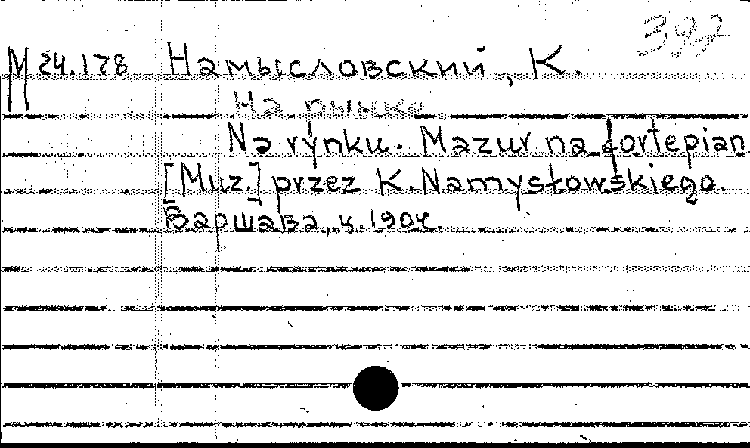 397
М 24.178 Намысловский, К.
На рынке
Na rynku. Mazur na fortepian
[Muz.] przez K. Namysłowskiego.
Варшава, ц. 1904.